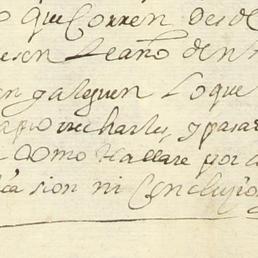 que Corren desde
esen te año den
en y aleguen Lo que
charles, y pasar
Como hallare por
ca sion ni Conclusion